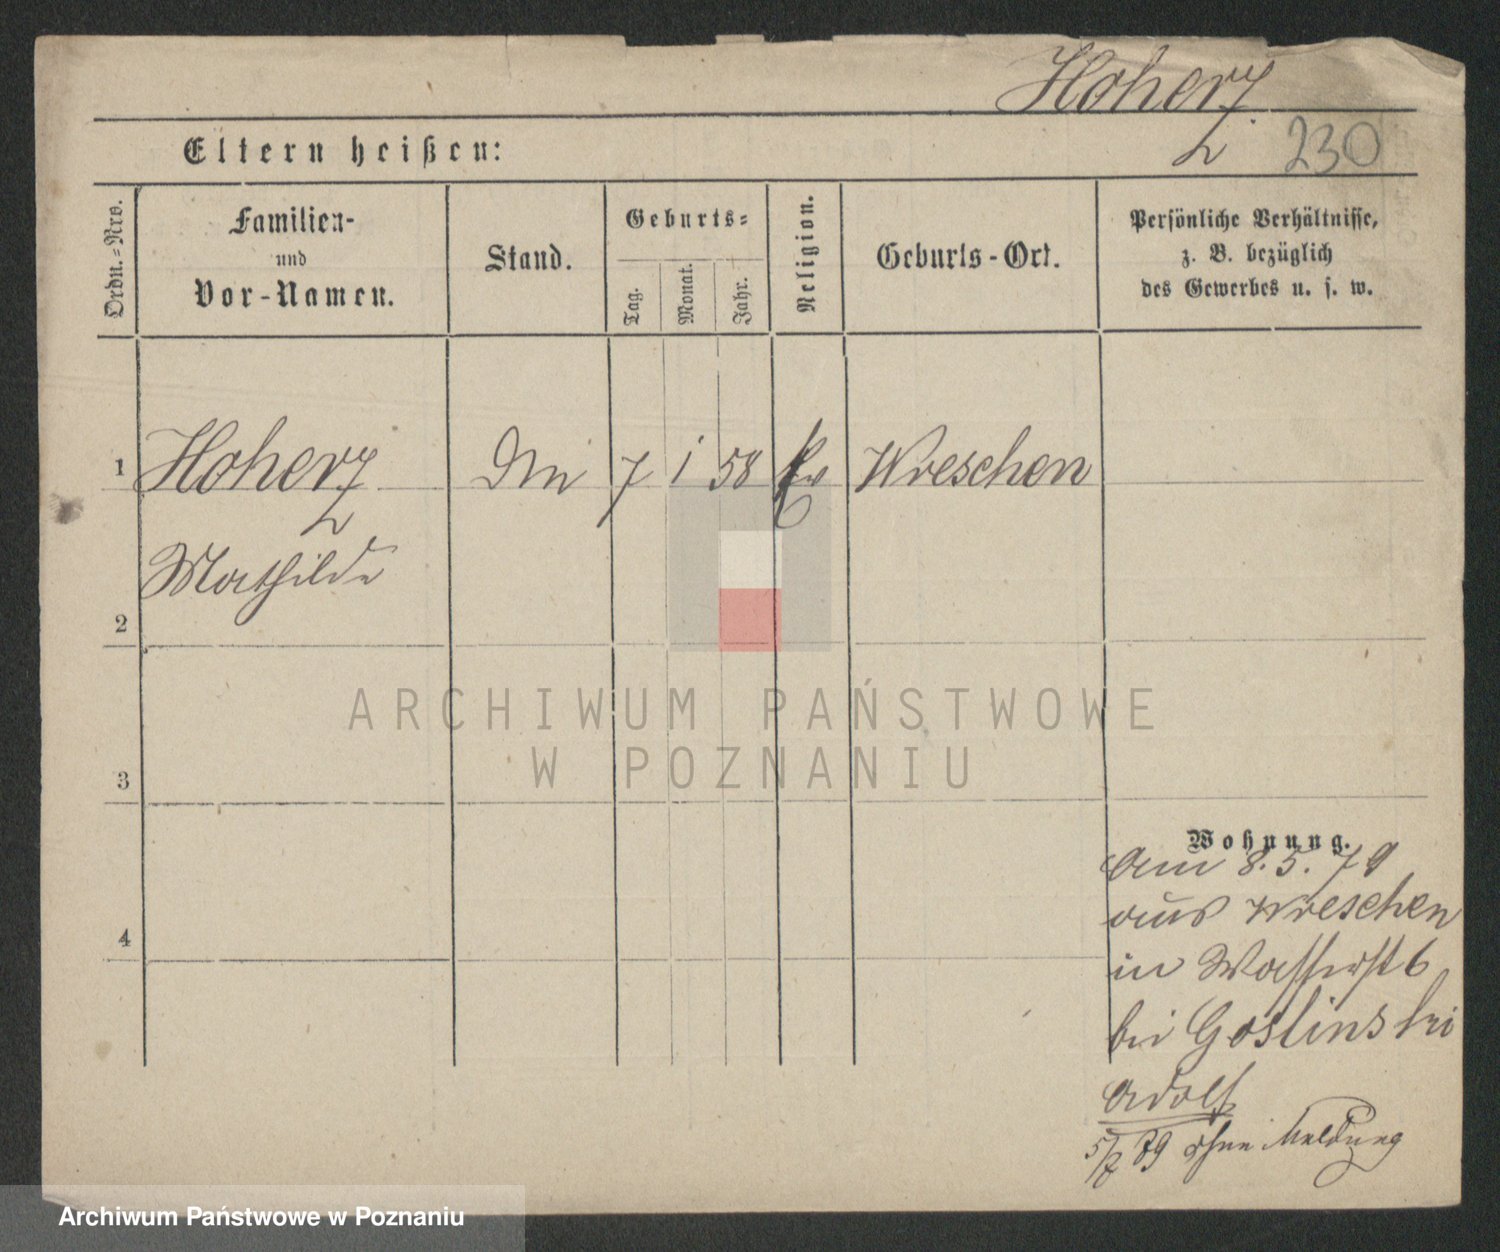 Hoherz
230
Eltern heißen:
Ordn.-Nro.
Familien-
und
Vor-Namen.
Stand.
Geburts-
Tag.
Monat.
Jahr.
Religion.
Geburts-Ort.
Persönliche Verhältnisse,
z. B. bezüglich
des Gewerbes u. s. w.
1
Hoherz
7 1 58
Wreschen
Mathilde
2
ARCHIWUM PAŃSTWOWE
W POZNANIU
3
Wohnung.
Am 8.5.79
aus Wreschen
4
in Wasserst 6
bei Goslinski
Adolf
5/7 79 ohne Meldung
Archiwum Państwowe w Poznaniu